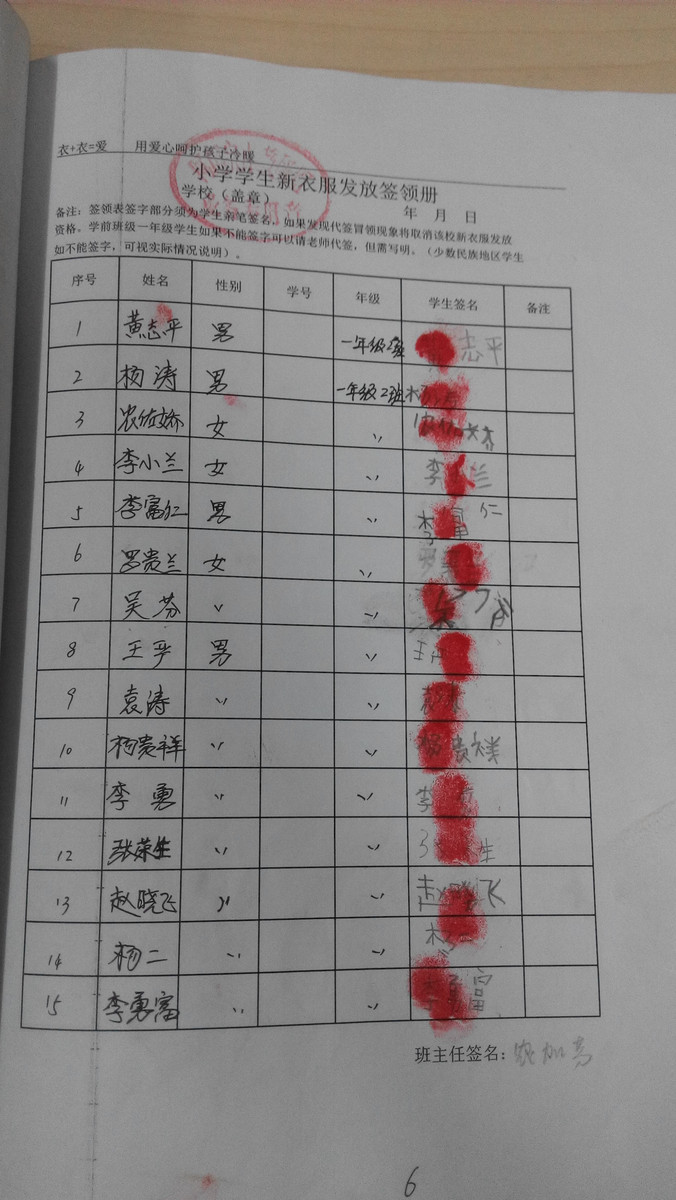 衣+衣=爱 用爱心呵护孩子冷暖
小学学生新衣服发放签领册
学校（盖章） 年 月 日
备注：签领表签字部分须为学生亲笔签名，如果发现代签冒领现象将取消该校新衣服发放
资格。学前班级一年级学生如果不能签字可以请老师代签，但需写明。（少数民族地区学生
如不能签字，可视实际情况说明）。
序号 姓名 性别 学号 年级 学生签名 备注
1 黄志平 男 一年级2班 志平
2 杨涛 男 一年级2班 杨
3 农佑娇 女 〃
4 李小兰 女 〃 李小兰
5 李富仁 男 〃 李富仁
6 罗贵兰 女 〃 罗
7 吴芬 〃 〃 吴芬
8 王平 男 〃 王
9 袁涛 〃 〃 袁涛
10 杨贵祥 〃 〃 杨贵祥
11 李勇 〃 〃 李勇
12 张荣生 〃 〃 张 生
13 赵晓飞 〃 〃 赵晓飞
14 杨二 〃 〃 杨二
15 李勇富 〃 〃 李勇富
班主任签名：农加亮
6